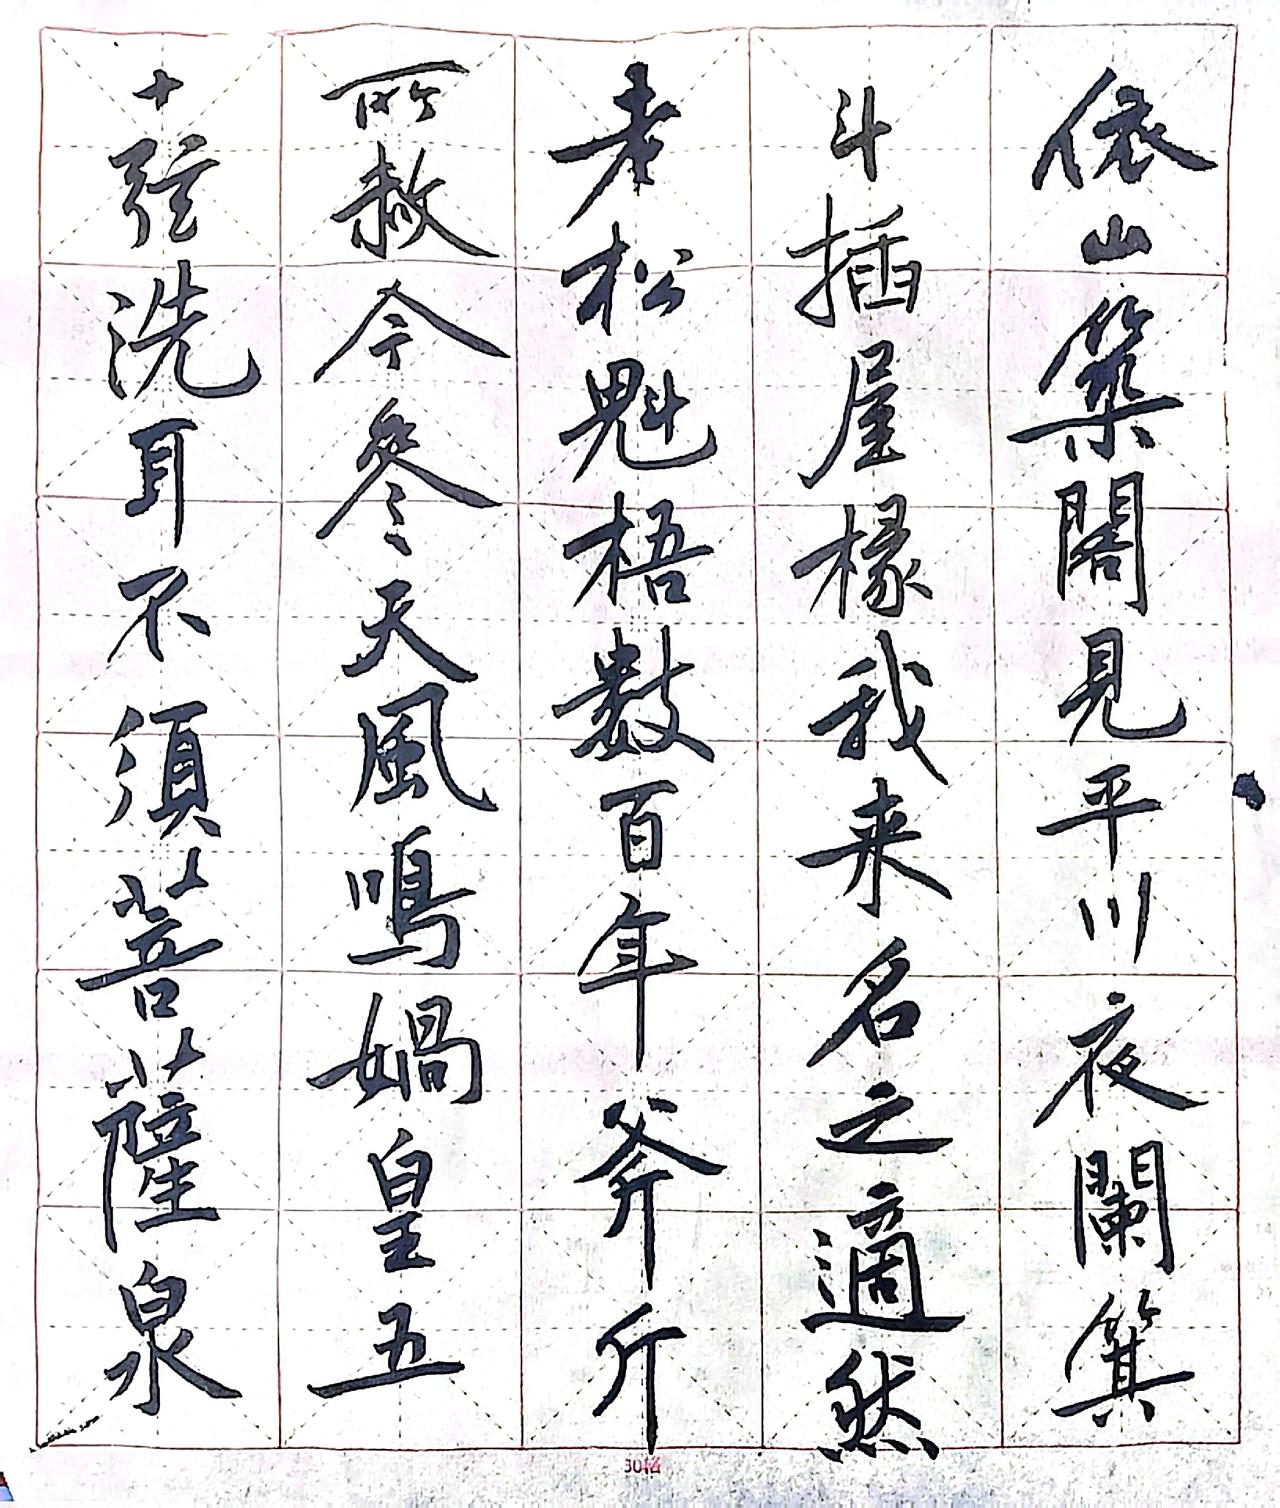 依山築閣見平川夜闌箕
斗插屋椽我来名之適然
老松魁梧數百年斧斤
所赦今參天風鳴媧皇五
十弦洗耳不須菩薩泉
30格